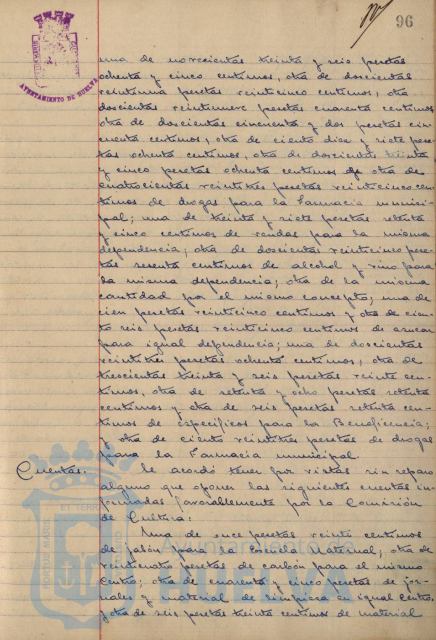 96
AYUNTAMIENTO DE HUELVA
una de novecientas treinta y seis pesetas
ochenta y cinco centimos, otra de doscientas
veintiuna pesetas veinticinco centimos, otra
doscientas veintinueve pesetas cuarenta centimos
otra de doscientas cincuenta y dos pesetas cin-
cuenta centimos, otra de ciento diez y siete pese-
tas ochenta centimos, otra de doscientas treinta
y cinco pesetas ochenta centimos otra de
cuatrocientas veintitres pesetas veinticinco cen-
timos de drogas para la Farmacia munici-
pal; una de treinta y siete pesetas setenta
y cinco centimos de vendas para la misma
dependencia; otra de doscientas veinticinco pese-
tas sesenta centimos de alcohol y vino para
la misma dependencia; otra de la misma
cantidad por el mismo concepto; una de
cien pesetas veinticinco centimos y otra de cien-
to seis pesetas veinticinco centimos de azucar
para igual dependencia; una de doscientas
veintitres pesetas ochenta centimos, otra de
trescientas treinta y seis pesetas veinte cen-
timos, otra de setenta y ocho pesetas setenta
centimos y otra de seis pesetas setenta cen-
timos de especificos para la Beneficencia;
y otra de ciento veintitres pesetas de drogas
para la Farmacia municipal.
Cuentas. Se acordó tener por vistas sin reparo
alguno que oponer las siguientes cuentas in-
formadas favorablemente por la Comisión
de Cultura:
Una de once pesetas veinte centimos
de jabón para la Escuela Maternal; otra de
veinticuatro pesetas de carbón para el mismo
Centro; otra de cuarenta y cinco pesetas de jor-
nales y material de limpieza en igual Centro,
y otra de seis pesetas treinta centimos de material